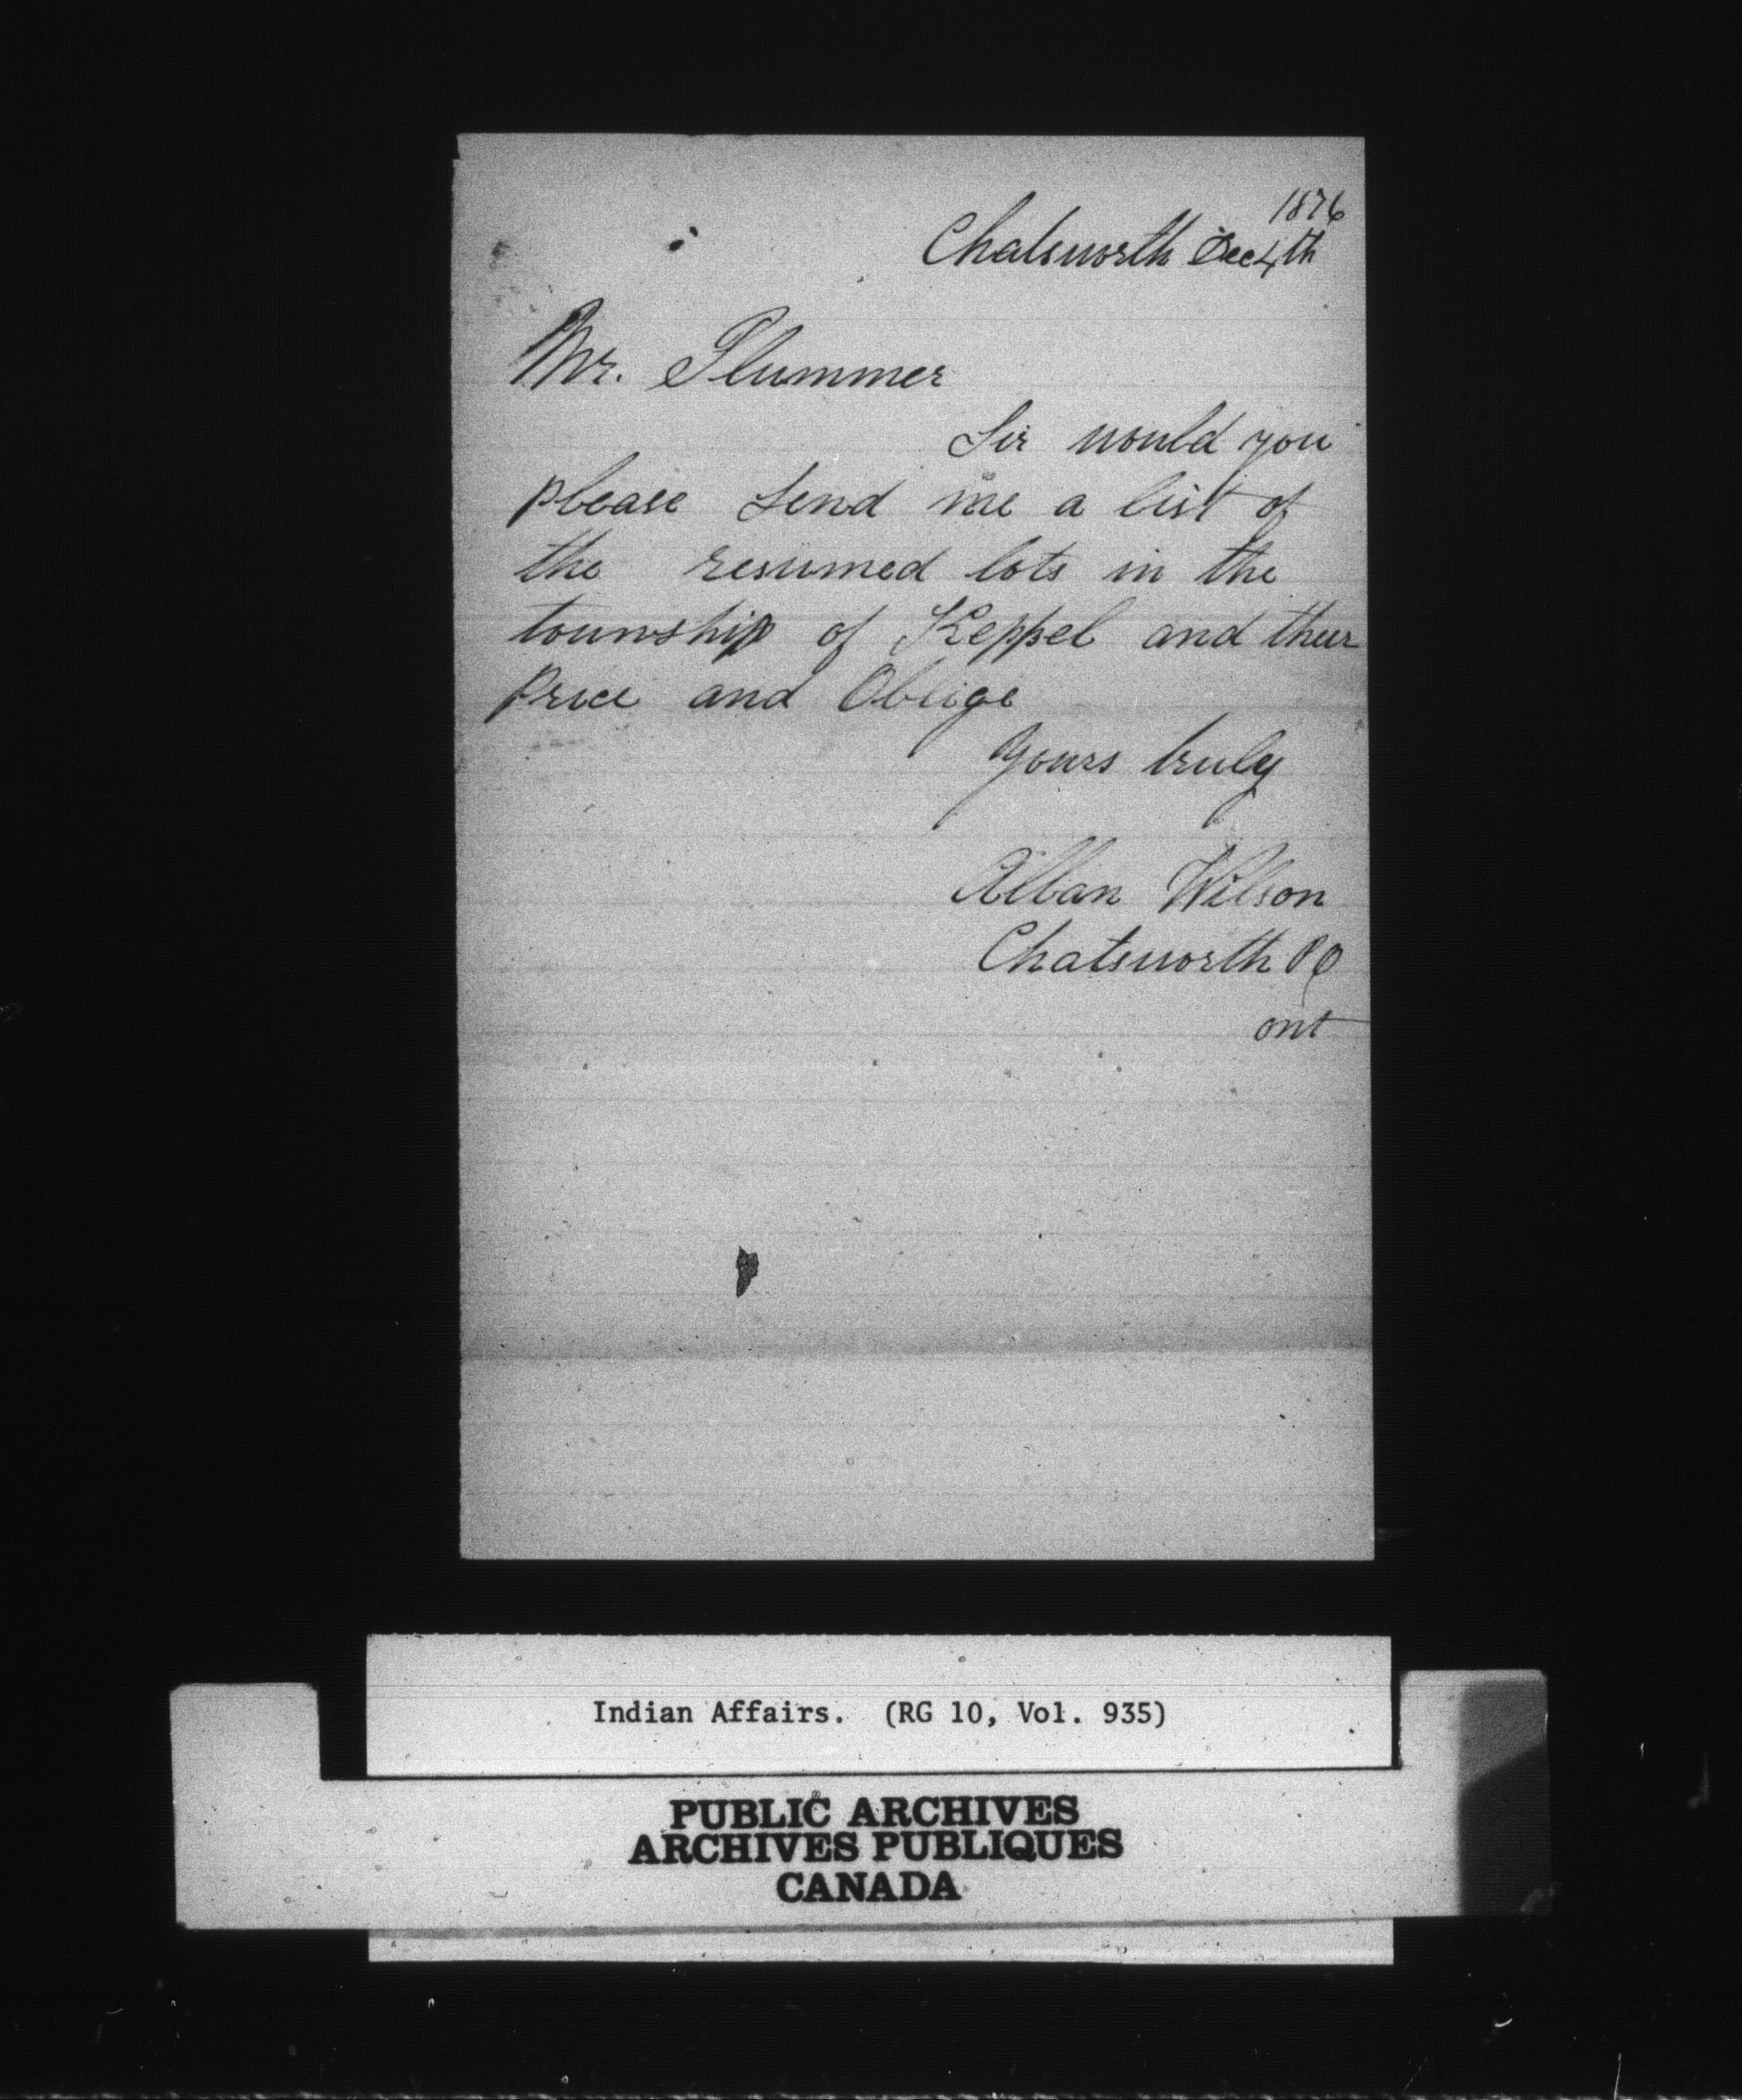 1876
Chatsworth Dec 4th
Mr. Plummer
Sir would you
please send me a list of
the resumed lots in the
township of Keppel and their
price and Oblige
Yours truly
Alban Wilson
Chatsworth PO
ont
Indian Affairs. (RG 10, Vol. 935)
PUBLIC ARCHIVES
ARCHIVES PUBLIQUES
CANADA